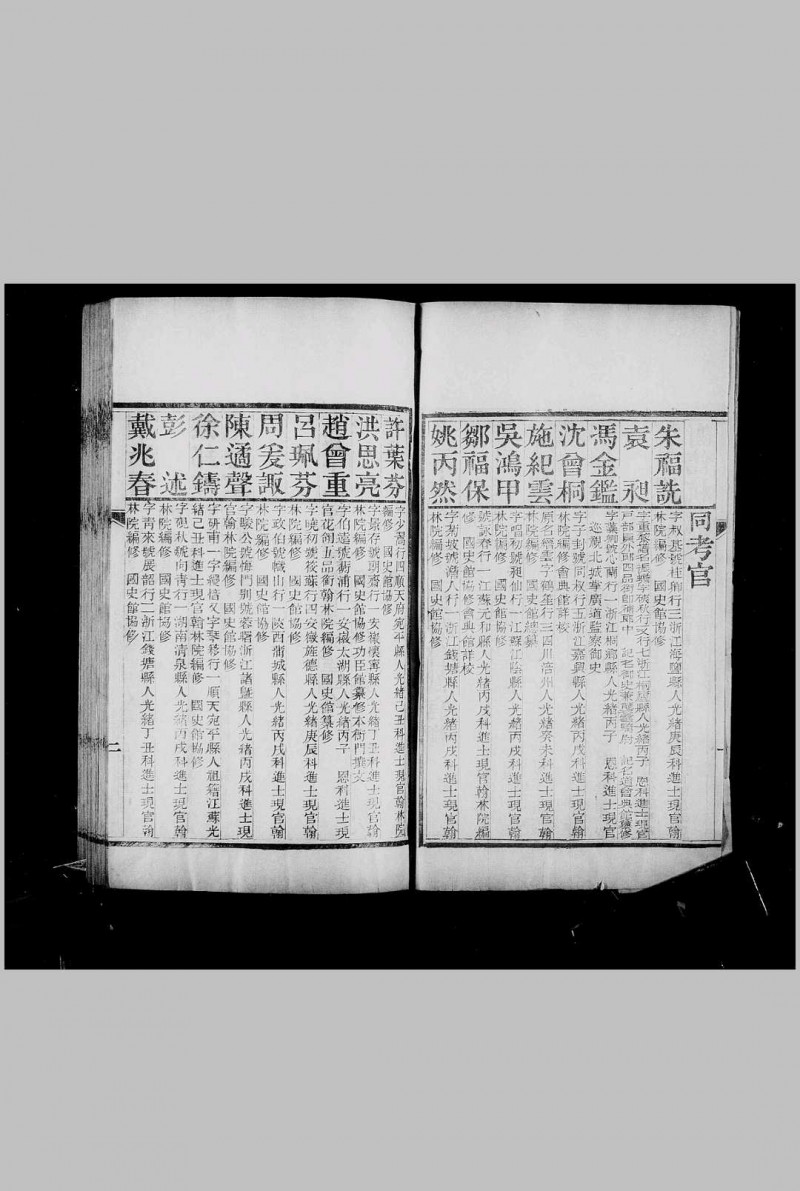 同考官
朱福詵
字叔基號桂卿行三浙江海鹽縣人光緒庚辰科進士現官翰
林院編修 國史館協修
袁昶
人光緒丙子 恩科進士現官
馮金鑑
號心蘭行一浙江桐鄉縣人光緒丙子 恩科進士現官
巡視北城掌廣道監察御史
沈曾桐
字子封號同叔行五浙江嘉興縣人光緒丙戌科進士現官翰
林院編修會典館詳校
施紀雲
字鶴笙行三四川涪州人光緒癸未科進士現官翰
林院編修 國史館總纂
吳鴻甲
字唱初號昶仙行一江蘇江陰縣人光緒丙戌科進士現官翰
林院編修 國史館協修
鄒福保
號詠春行一江蘇元和縣人光緒丙戌科進士現官翰林院編
修 國史館協修會典館詳校
姚丙然
字菊坡號 行一浙江錢塘縣人光緒丙戌科進士現官翰
林院編修 國史館協修
一
許葉芬
字少 行四順天府宛平縣人光緒己丑科進士現官翰林院
編修 國史館協修
洪思亮
字景存號朗齋行一安徽懷寧縣人光緒丁丑科進士現官翰
林院編修 國史館協修功臣館纂修本衙門撰文
趙曾重
字伯遠號蘅浦行一安徽太湖縣人光緒丙子 恩科進士現
官花翎五品銜翰林院編修 國史館纂修
呂珮芬
字曉初號筱蘇行四安徽旌德縣人光緒庚辰科進士現官翰
林院編修 國史館協修
周爰諏
字政伯號幟山行一陝西蒲城縣人光緒丙戌科進士現官翰
林院編修 國史館協修
陳遹聲
字駿公號悔門 號蓉曙浙江諸暨縣人光緒丙戌科進士現
官翰林院編修 國史館協修
徐仁鑄
字研甫一字縵愔又字 行一順天宛平縣人祖籍江蘇光
緒己丑科進士現官翰林院編修 國史館協修
彭述
字 號向青行一湖南清泉縣人光緒丙戌科進士現官翰
林院編修 國史館協修
戴兆春
字青來號展韶行二浙江錢塘縣人光緒丁丑科進士現官翰
林院編修 國史館協修
二